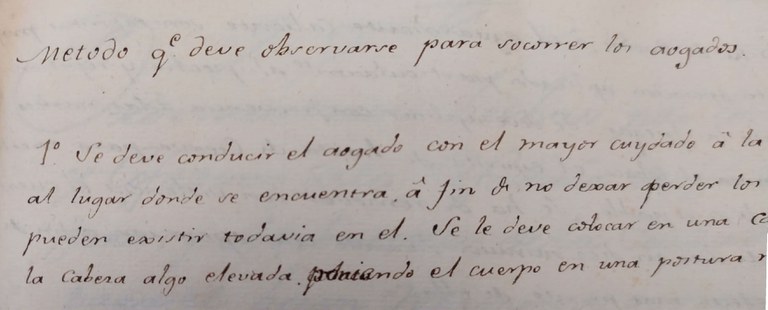 Metodo qe deve observarse para socorrer los aogados.
1º Se deve conducir el aogado con el mayor cuydado â la
al lugar donde se encuentra, â fin de no dexar perder los
pueden existir todavia en el. Se le deve colocar en una
la cabeza algo elevada, poniendo el cuerpo en una postura